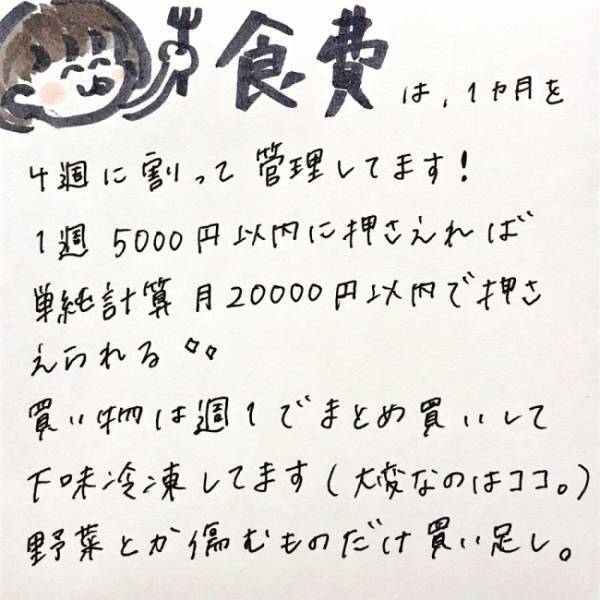 食費は、1ヵ月を
4週に割って管理してます!
1週5000円以内に押さえれば
単純計算月20000円以内で押さ
えられる
買い物は週1でまとめ買いして
下味冷凍してます(大変なのはココ。)
野菜とか傷むものだけ買い足し。